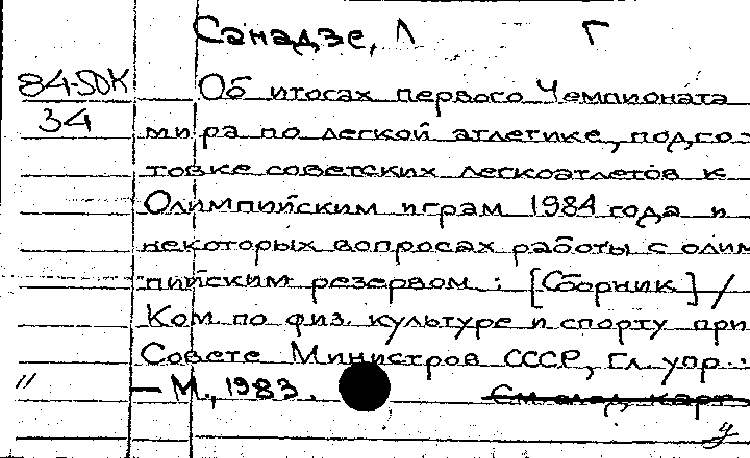 Санадзе, Л Г
84-50К Об итогах первого Чемпионата
34 мира по легкой атлетике, подго-
товке советских легкоатлетов к
Олимпийским играм 1984 года и
некоторых вопросах работы с олим
пийским резервом : [Сборник] /
Ком по физ. культуре и спорту при
Совете Министров СССР, Гл. упр..
" — М., 1983.
См след, карт